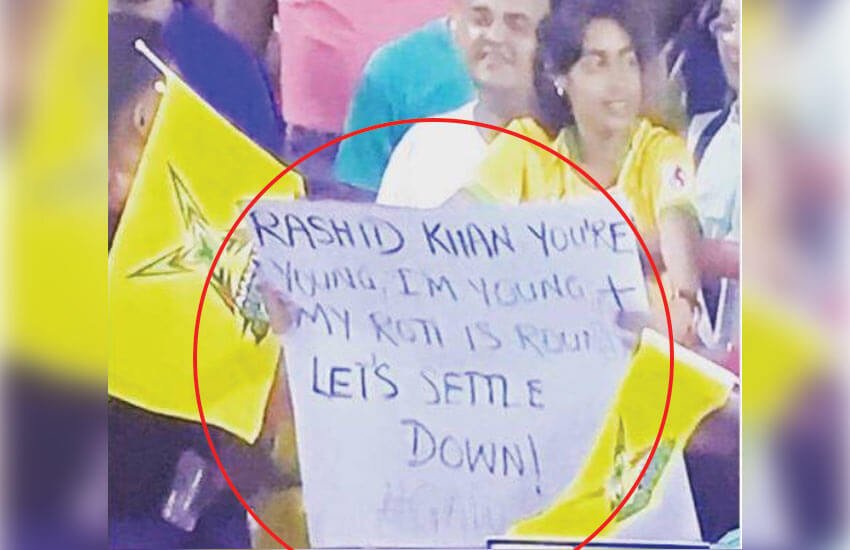 RASHID KHAN YOU'RE
YOUNG, I'M YOUNG, +
MY ROTI IS ROUND
LET'S SETTLE
DOWN!